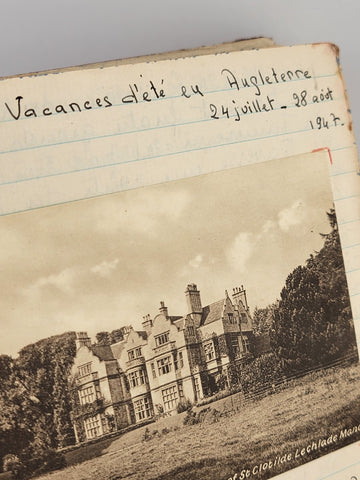 Vacances d'été en Angleterre
24 juillet - 28 août
1947.
of St Clotilde Lechlade Mano